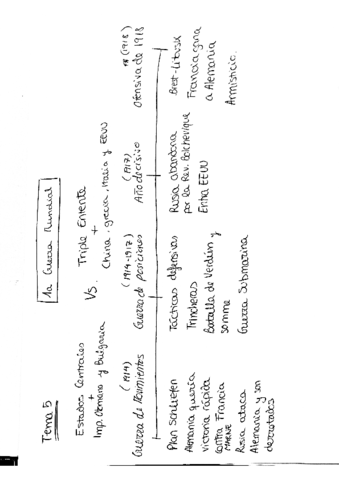 Tema 5
1a Guerra Mundial
Estados Centrales
+
Imp. Otomano y Bulgaria
VS.
Triple Entente
+
China, grecia, italia y EEUU
(1914)
Guerra de Movimientos
(1914-1917)
Guerra de posiciones
(1917)
Año decisivo
(1918)
Ofensiva de 1918
Plan Schliefen
Alemania quería
victoria rápida
contra Francia
MARNE
Rusia ataca
Alemania y son
derrotados
Tácticas defensivas
Trincheras
Batalla de Verdún y
somme
Guerra Submarina
Rusia abandona
por la Rev. Bolchevique
Entra EEUU
Brest-Litovsk
Francia gana
a Alemania
Armisticio.